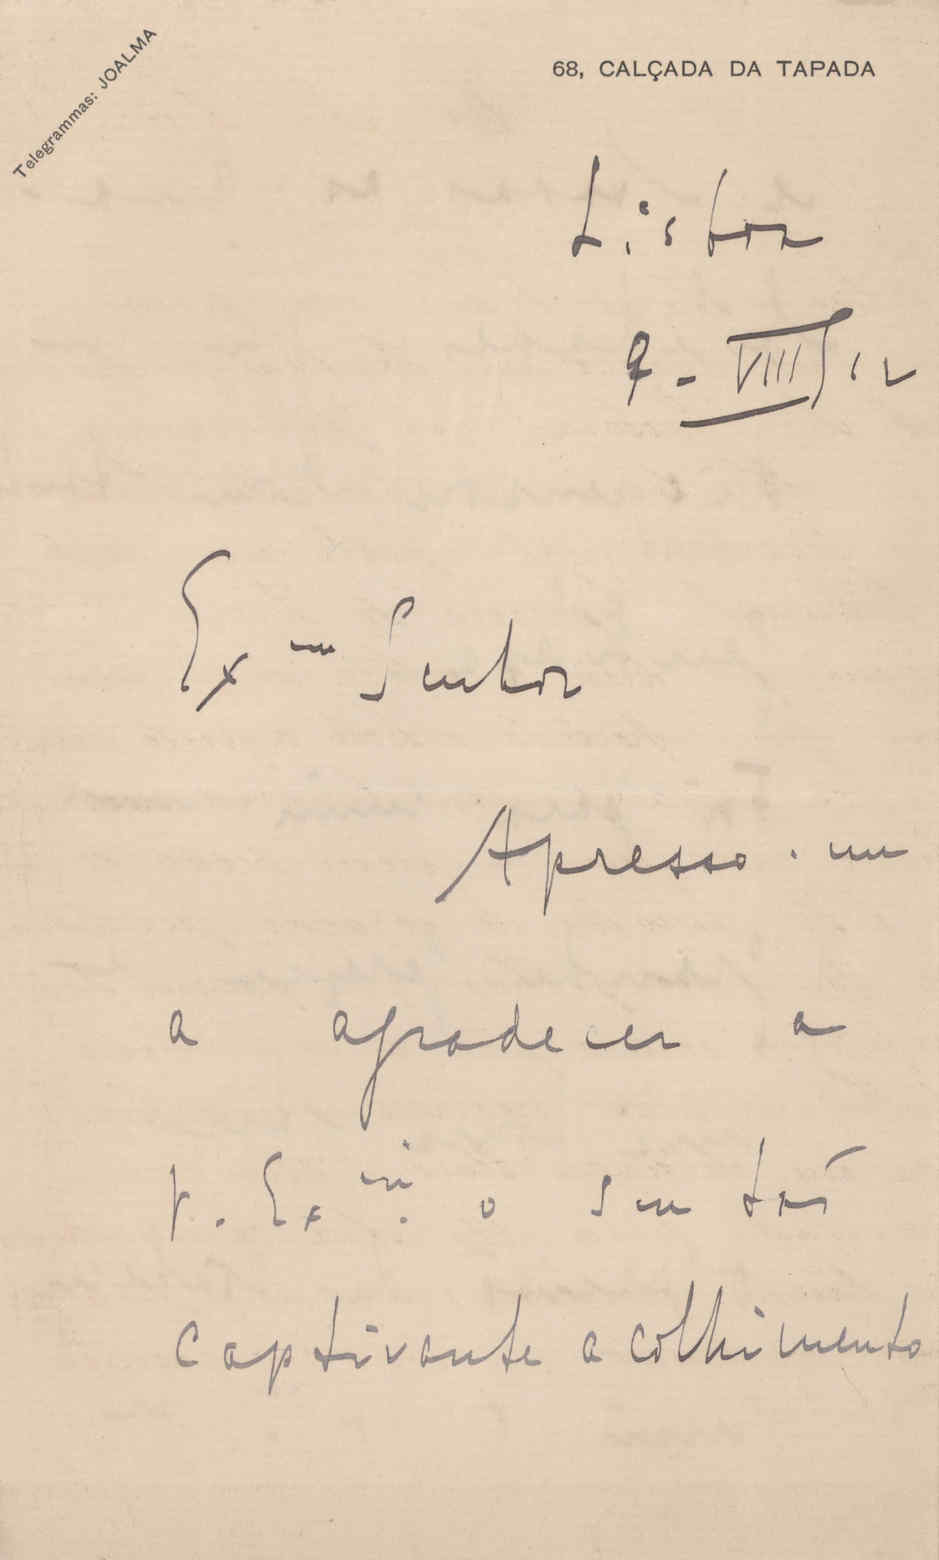 Telegrammas: JOALMA
68, CALÇADA DA TAPADA
Lisboa
9-VIII/12
Exmo Senhor
Apresso-me
a agradecer a
V. Exia. o seu tão
captivante acolhimento